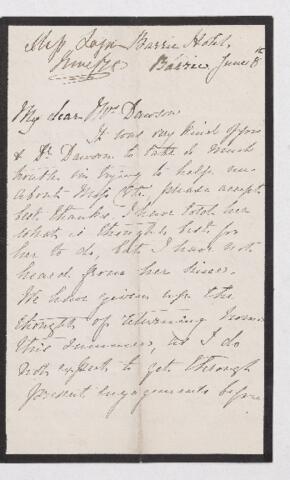 Miss
Barrie Hotel,
Barrie June 8th
My dear Mrs Dawson
It was very kind of you
& Dr Dawson to take so much
trouble in trying to help me
about Miss please accept
best thanks. I have told her
what is thought best for
her to do, but I have not
heard from her since.
We have given up the
thought of returning home
this summer, as I do
not expect to get through
present engagements before